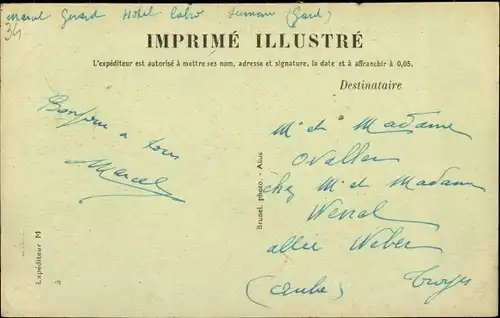 Marcel Gerard Hotel Cabro (Gard)
34
IMPRIMÉ ILLUSTRÉ
L'expéditeur est autorisé à mettre ses nom, adresse et signature, la date et à affranchir à 0,05.
Destinataire
Bonjour a tous
Marcel
Mr et Madame
Ovallen
chez Mr et Madame
allée Weber
(Aube) Troyes
Brunel, photo. - Alès
Expéditeur M
à